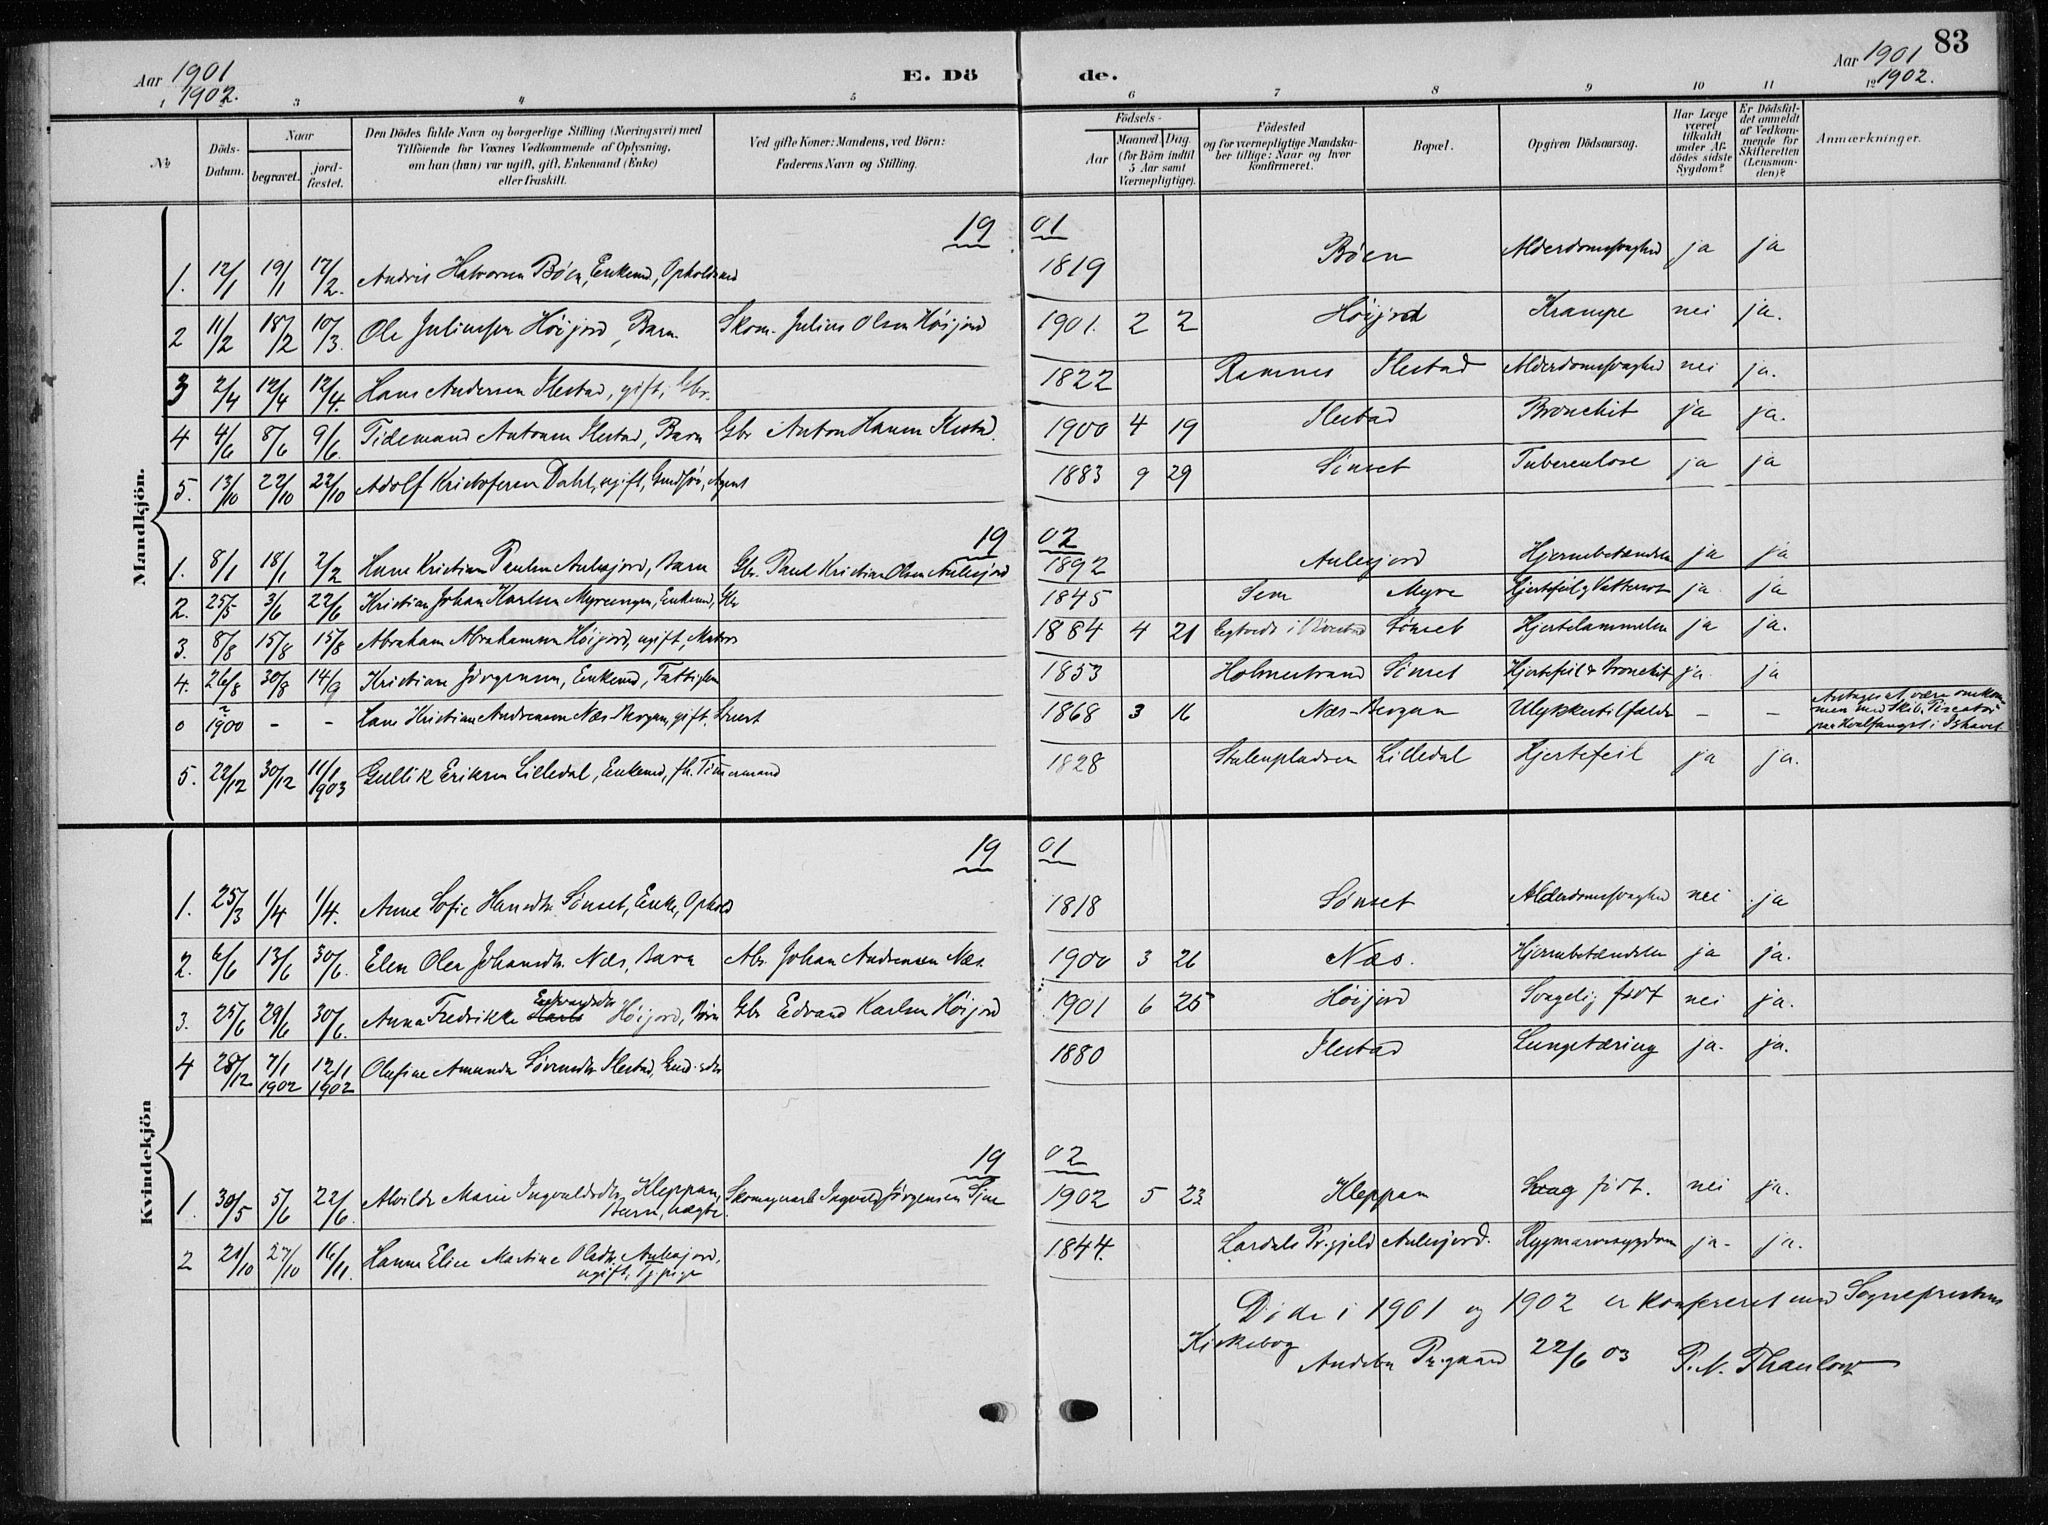 83
Aar 1901 1902.
E. Döde.
Aar 1901 1902.
1 3 4 5 6 7 8 9 10 11 12
№
Döds-Datum.
Naar
begravet.
jord-fæstet.
Den Dödes fulde Navn og borgerlige Stilling (Næringsvei) med
Tilföiende for Voxnes Vedkommende af Oplysning,
om han (hun) var ugift, gift, Enkemand (Enke)
eller fraskilt.
Ved gifte Koner: Mandens, ved Börn:
Faderens Navn og Stilling.
Födsels-
Aar
Maaned Dag
(for Börn indtil
5 Aar samt
Værnepligtige).
Födested
og for værnepligtige Mandska-
ber tillige: Naar og hvor
konfirmeret.
Bopæl.
Opgiven Dödsaarsag.
Har Læge
været
tilkaldt
under Af-
dödes sidste
Sygdom?
Er Dödsfal-
det anmeldt
af Vedkom-
mende for
Skifteretten
(Lensman-
den)?
Anmærkninger.
Mandkjön.
1901
1. 12/1 19/1 17/2. Andris Halvorsen Bøen, Enkemd, Opholdsmd 1819 Bøen Alderdomssvaghed ja ja
2 11/2 18/2 10/3. Ole Juliussen Høijord, Barn. Skom. Julius Olsen Høijord 1901. 2 2 Høijord Krampe nei ja.
3 2/4 12/4 12/4. Hans Andersen Ilestad, gift, Gbr. 1822 Ramnes Ilestad Alderdomssvaghed nei ja.
4 4/6 8/6 9/6. Tidemand Antonsen Ilestad, Barn Gbr Anton Hansen Ilestad. 1900 4 19 Ilestad Bronchit ja ja.
5. 13/10 22/10 22/10 Adolf Kristofersen Dahl, ugift, Agent 1883 9 29 Sønset Tuberculose ja ja
1902
1. 8/1 18/1 2/2 Hans Kristian Paulsen Aulesjord, Barn Gbr. Paul Kristian Olsen Aulesjord 1892 Aulesjord Hjernebetændelse ja ja
2. 25/5 3/6 22/6 Kristian Johan Karlsen Myreengen, Enkemd, Gbr 1845 Sem Myre Hjertefeil og Vattersot ja ja
3. 8/8 15/8 15/8 Abraham Abrahamsen Høijord, ugift, Matros 1884 4 21 Sønset Hjertelammelse ja ja.
4. 26/8 30/8 14/9 Kristian Jørgensen, Enkemd, Fattiglem 1853 Holmestrand Sønset Hjertefeil & Bronchit ja. ja
0 ~1900 - - Hans Kristian Andreasen Næs-Bergan, gift, 1868 3 16 Næs-Bergan Ulykkestilfælde - - Antages at være omkom-
men med Skib "Piscator"
paa Hvalfangst i Ishavet
5. 22/12 30/12 11/1 1903 Gullik Eriksen Lilledal, Enkemd, fh. Tømmermand 1828 Stulenpladsen Lilledal Hjertefeil ja ja.
Kvindekjön
1901
1. 25/3 1/4 1/4. Anne Sofie Hansdtr. Sønset, Enke, Ophold 1818 Sønset Alderdomssvaghed nei ja
2. 6/6 13/6 30/6. Elen Olea Johansdtr. Næs, Barn Abr. Johan Andreasen Næs. 1900 3 26 Næs. Hjernebetændelse ja ja.
3. 25/6 29/6 30/6. Anna Fredrikke Edvardsdtr Høijord, Barn Gbr Edvard Karlsen Høijord 1901 6 25 Høijord Svagelig født nei ja.
4 28/12 7/1 1902 12/1 1902 Olufine Amanda Sørensdtr Ilestad, 1880 Ilestad Lungetæring ja. ja.
1902
1. 30/5 5/6 22/6. Alvilde Marie Ingvaldsdtr. Kleppan,
Barn, uægte. Skomagersv. Ingvald Jørgensen 1902 5 23 Kleppan Svag født. nei ja.
2 21/10 27/10 16/11. Hanna Elise Martine Olsdtr. Aulesjord,
ugift, Tj.pige 1844. Lardals Pr.gjeld Aulesjord. Rygmarvssygdom ja- ja.
Døde i 1901 og 1902 er konfereret med Sogneprestens
Kirkebog
Andebu Pr.gaard 22/6 03 P. N. Thaulow